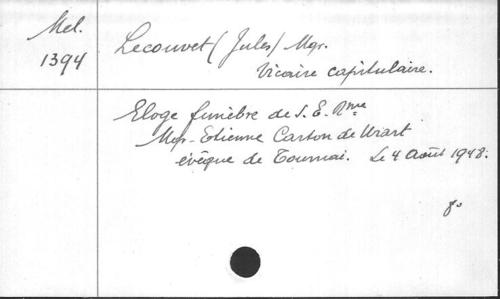 Mel.
1394
Lecouvet (Jules) Mgr.
Vicaire capitulaire.
Eloge funèbre de S. E. Rme
Mgr. Etienne Carton de Wiart
évêque de Tournai. Le 4 Août 1948.
8o